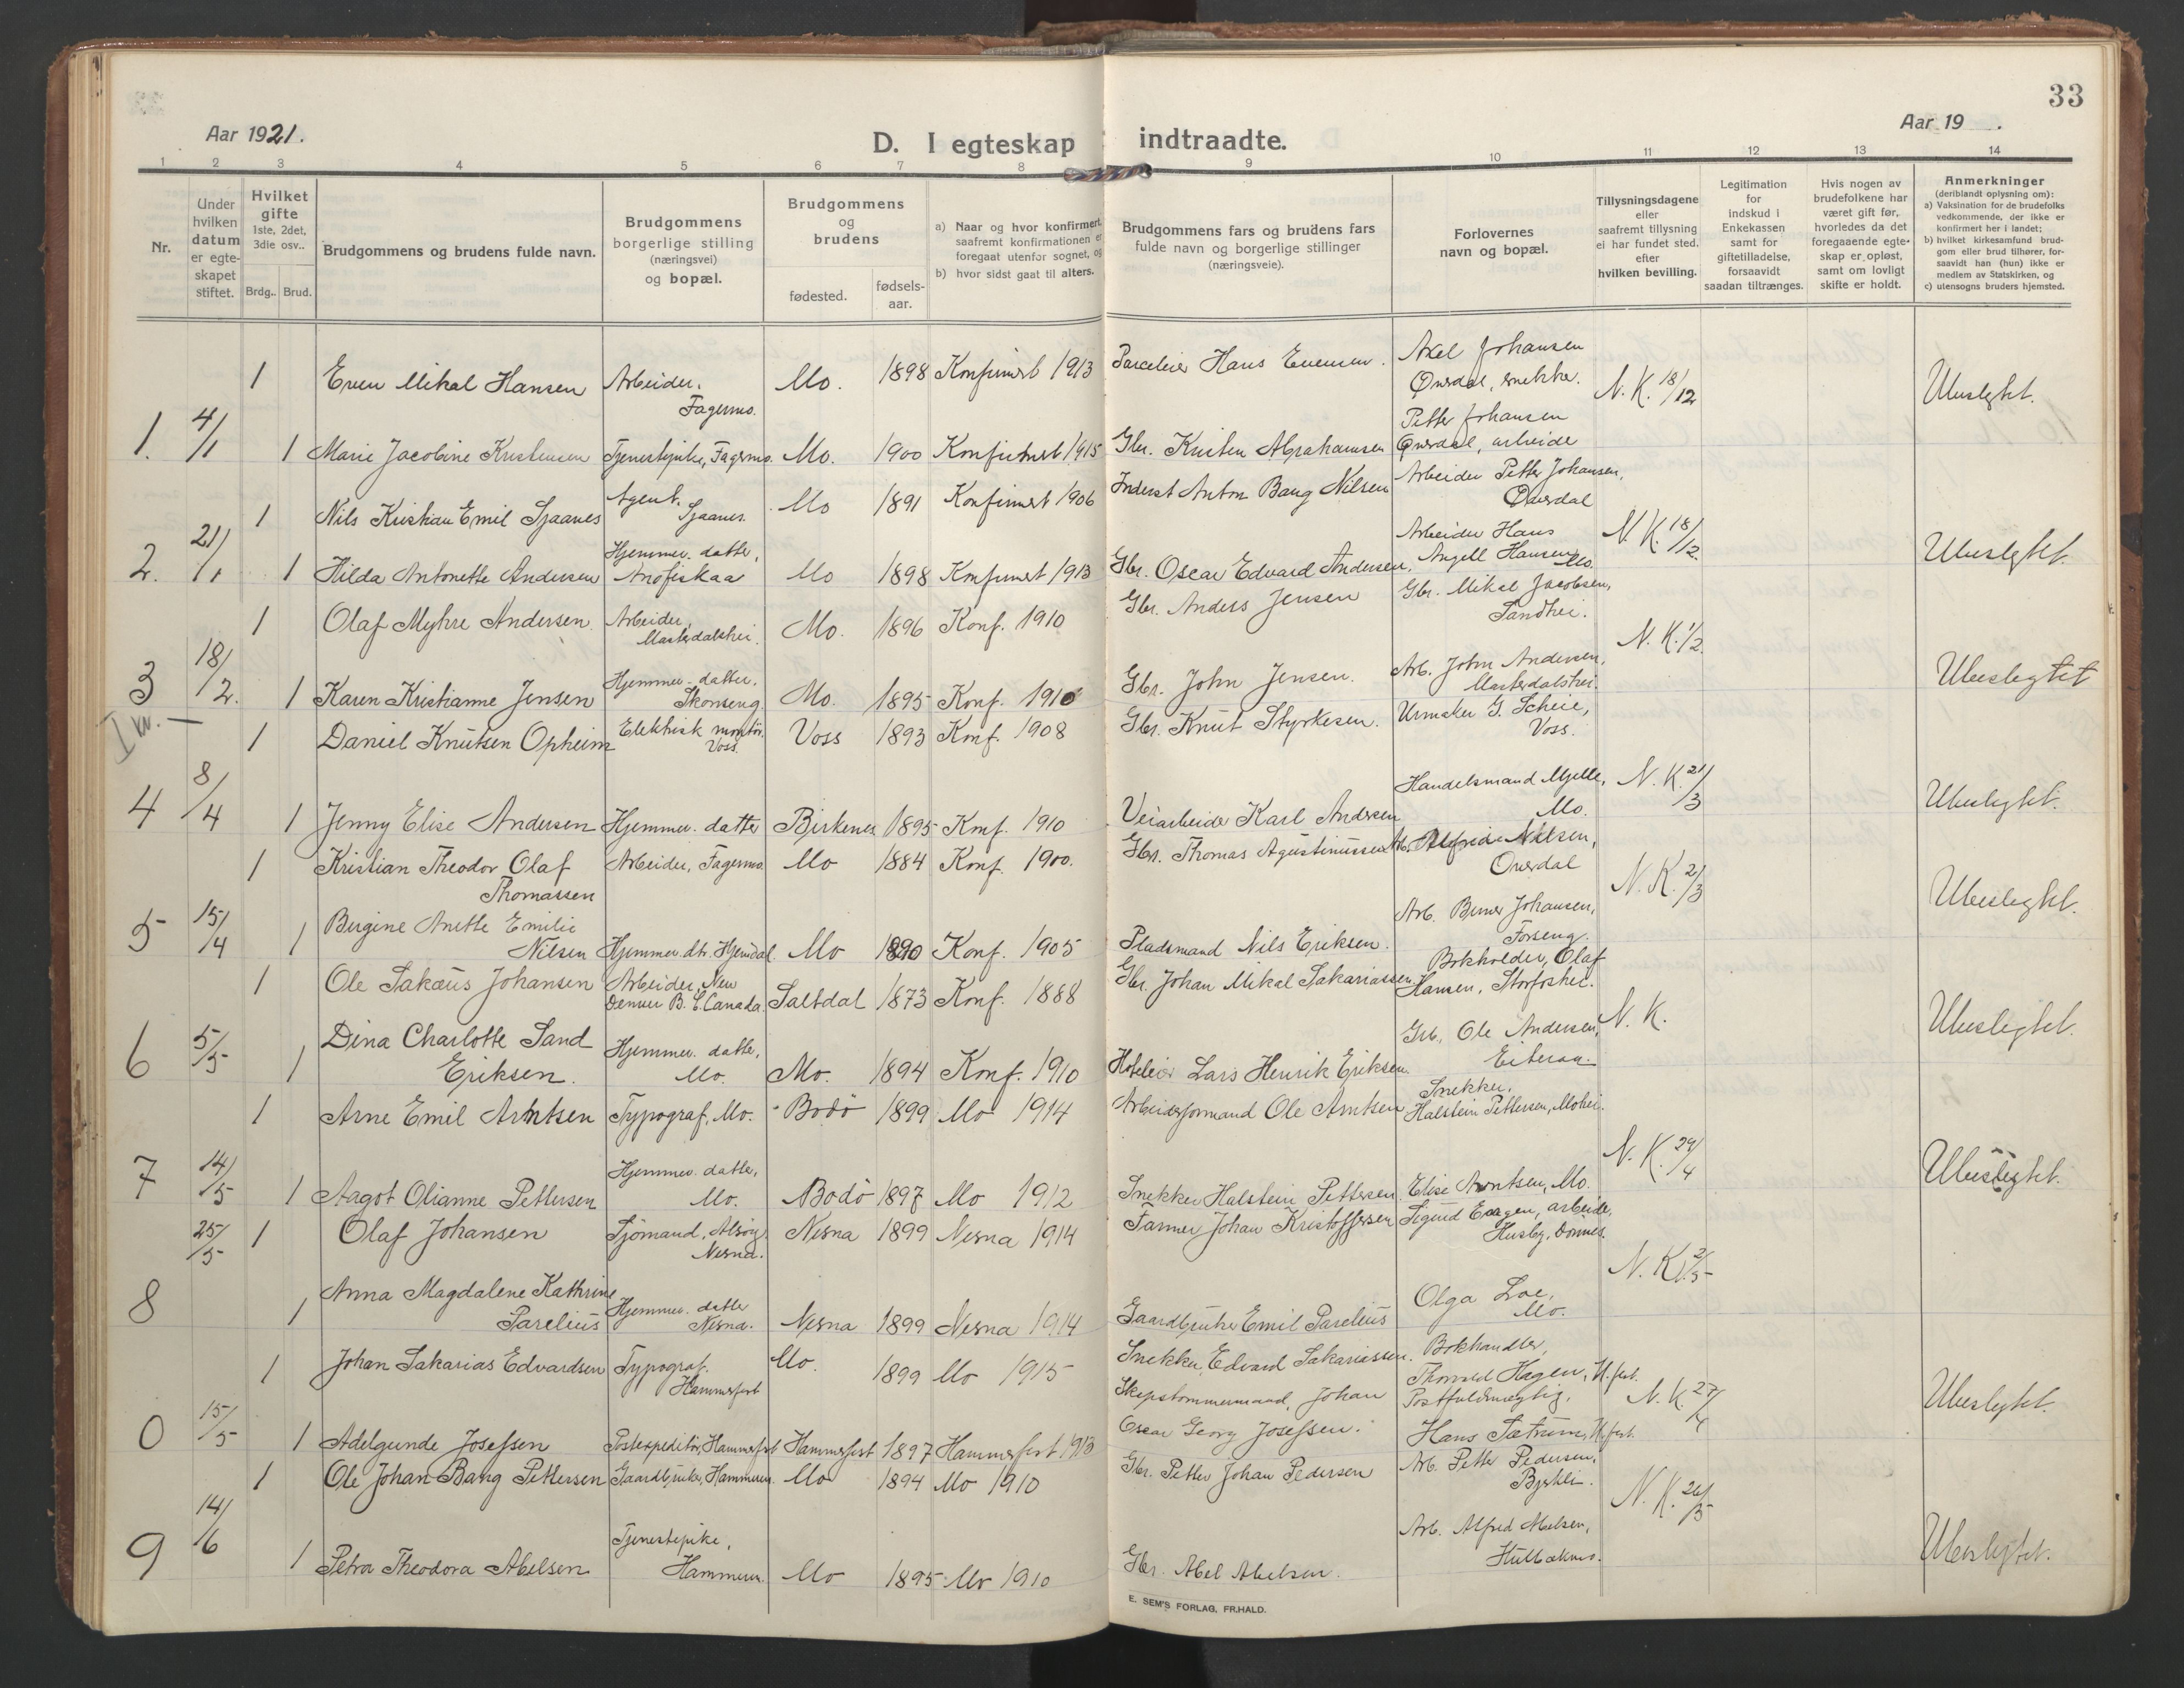 33
Aar 1921.
D. I egteskap indtraadte.
Aar 19 .
1 2 3 4 5 6 7 8 9 10 11 12 13 14
Nr.
Under hvilken datum er egte-skapet stiftet.
Hvilket gifte 1ste, 2det, 3die osv..
Brdg.. Brud.
Brudgommens og brudens fulde navn.
Brudgommens borgerlige stilling (næringsvei) og bopæl.
Brudgommens og brudens
fødested.
fødsels-aar.
a) Naar og hvor konfirmert, saafremt konfirmationen er foregaat utenfor sognet, og
b) hvor sidst gaat til alters.
Brudgommens fars og brudens fars fulde navn og borgerlige stillinger (næringsveie).
Forlovernes navn og bopæl.
Tillysningsdagene eller saafremt tillysning ei har fundet sted. efter hvilken bevilling.
Legitimation for indskud i Enkekassen samt for giftetilladelse, forsaavidt saadan tiltrænges.
Hvis nogen av brudefolkene har været gift før, hvorledes da det foregaaende egte-skap er opløst, samt om lovligt skifte er holdt.
Anmerkninger (deriblandt oplysning om):
a) Vaksination for de brudefolks vedkommende, der ikke er konfirmert her i landet;
b) hvilket kirkesamfund brud-gom eller brud tilhører, for-saavidt han (hun) ikke er medlem av Statskirken, og
c) utensogns bruders hjemsted.
1 Even Mikal Hansen Arbeider, Fagermo. Mo. 1898 Konfirmert 1913 Parceleier Hans Evensen. Axel Johansen Øverdal, snekker. N. K. 18/12 Ubeslegtet.
1. 4/1 1 Marie Jacobine Kristensen Tjenestepike, Fagermo. Mo. 1900 Konfirmert 1915 Gbr. Kristen Abrahamsen Petter Johansen Øverdal, arbeider
1 Nils Kristian Emil Sjaanes Agent, Sjaanes. Mo 1891 Konfirmert 1906 Inderst Anton Bang Nilsen Arbeider Petter Johansen, Øverdal N. K. 18/12. Ubeslegtet.
2. 21/1 1 Hilda Antonette Andersen Hjemmev. datter, Mo 1898 Konfirmert 1913 Gbr. Oscar Edvard Andersen, Arbeider Hans Angell Hansen, Mo.
1 Olaf Myhre Andersen. Arbeider, Mo. 1896 Konf. 1910 Gbr. Anders Jensen Gbr. Mikal Jacobsen, Sandhei. N. K. 1/2. Ubeslegtet
3 18/2. 1 Karen Kristianne Jensen Hjemmev. datter. Skonseng. Mo. 1895 Konf. 1910 Gbr. John Jensen. Arb. John Andersen,
1 Daniel Knutsen Opheim Elektrisk montør. Voss. Voss 1893 Konf. 1908 Gbr. Knut Styrkesen. Urmaker G. Scheie, Voss. N. K. 21/3 Ubeslegtet.
4 8/4 1 Jenny Elise Andersen Hjemmev. datter Birkenes 1895 Konf. 1910 Veiarbeider Karl Andersen Handelsmand Mjelle, Mo.
1 Kristian Theodor Olaf Thomassen Arbeider, Fagermo. Mo 1884 Konf. 1900. Gbr. Thomas Agustinussen Arb. Alfred Nilsen, Øverdal N. K. 2/3 Ubeslegtet.
5 15/4 1 Bergine Anette Emilie Nilsen Hjemmev. dtr. Hjemdal Mo 1890 Konf. 1905 Pladsmand Nils Eriksen. Arb. Johansen, Forseng.
1 Ole Sakæus Johansen Arbeider, New Denver B. C. Canada. Saltdal 1873 Konf. 1888 Gbr. Johan Mikal Sakariassen Bokholder, Olaf Hansen, Storfoshei. N. K. Ubeslegtet.
6 5/5 1 Dina Charlotte Sand Eriksen. Hjemmev. datter, Mo. Mo. 1894 Konf. 1910 Hoteleier Lars Henrik Eriksen. Grb. Ole Andersen, Eiteraa.
1 Arne Emil Arntsen Typograf, Mo. Bodö 1899 Mo 1914 Arbeidsformand Ole Arntsen Snekker, Halstein Pettersen, Mohei. N. K. 29/4 Ubeslegtet.
7 14/5 1 Aagot Olianne Pettersen Hjemmev. datter, Mo. Bodö 1897 Mo 1912 Snekker Halstein Pettersen Elise Arntsen, Mo.
25/5 1 Olaf Johansen Sjömand, Alsöy Nesna. Nesna 1899 Nesna 1914 Farmer Johan Kristoffersen Sigurd arbeider, Husby, Dönnes. N. K. 2/5
8 1 Anna Magdalene Kathrine Parelius Hjemmev. datter Nesna. Nesna 1899 Nesna 1914 Gaardbruker Emil Parelius Olga Loe, Mo.
1 Johan Sakarias Edvardsen Typograf. Hammerfest Mo. 1899 Mo 1915 Snekker, Edvard Sakariassen. Bokhandler, Thorvald Hagen, H.fest. N. K. 27/4 Ubeslegtet.
0 15/5 1 Adelgunde Josefsen Postexpeditör, Hammerfest Hammerfest 1897 Hammerfest 1913 Skipstømmermand, Johan Oscar Georg Josefsen. Postfuldmægtig, Hans Sætrum, H.fest.
1 Ole Johan Bang Pettersen Gaardbruker, Hammeren. Mo 1894 Mo 1910 Gbr. Petter Johan Pedersen Arb. Petter Pedersen, N. K. 26/5 Ubeslegtet.
9 14/6 1 Petra Theodora Abelsen Tjenestepike, Hammeren. Mo 1895 Mo 1910 Gbr. Abel Abelsen. Arb. Alfred
E. SEM'S FORLAG, FR.HALD.